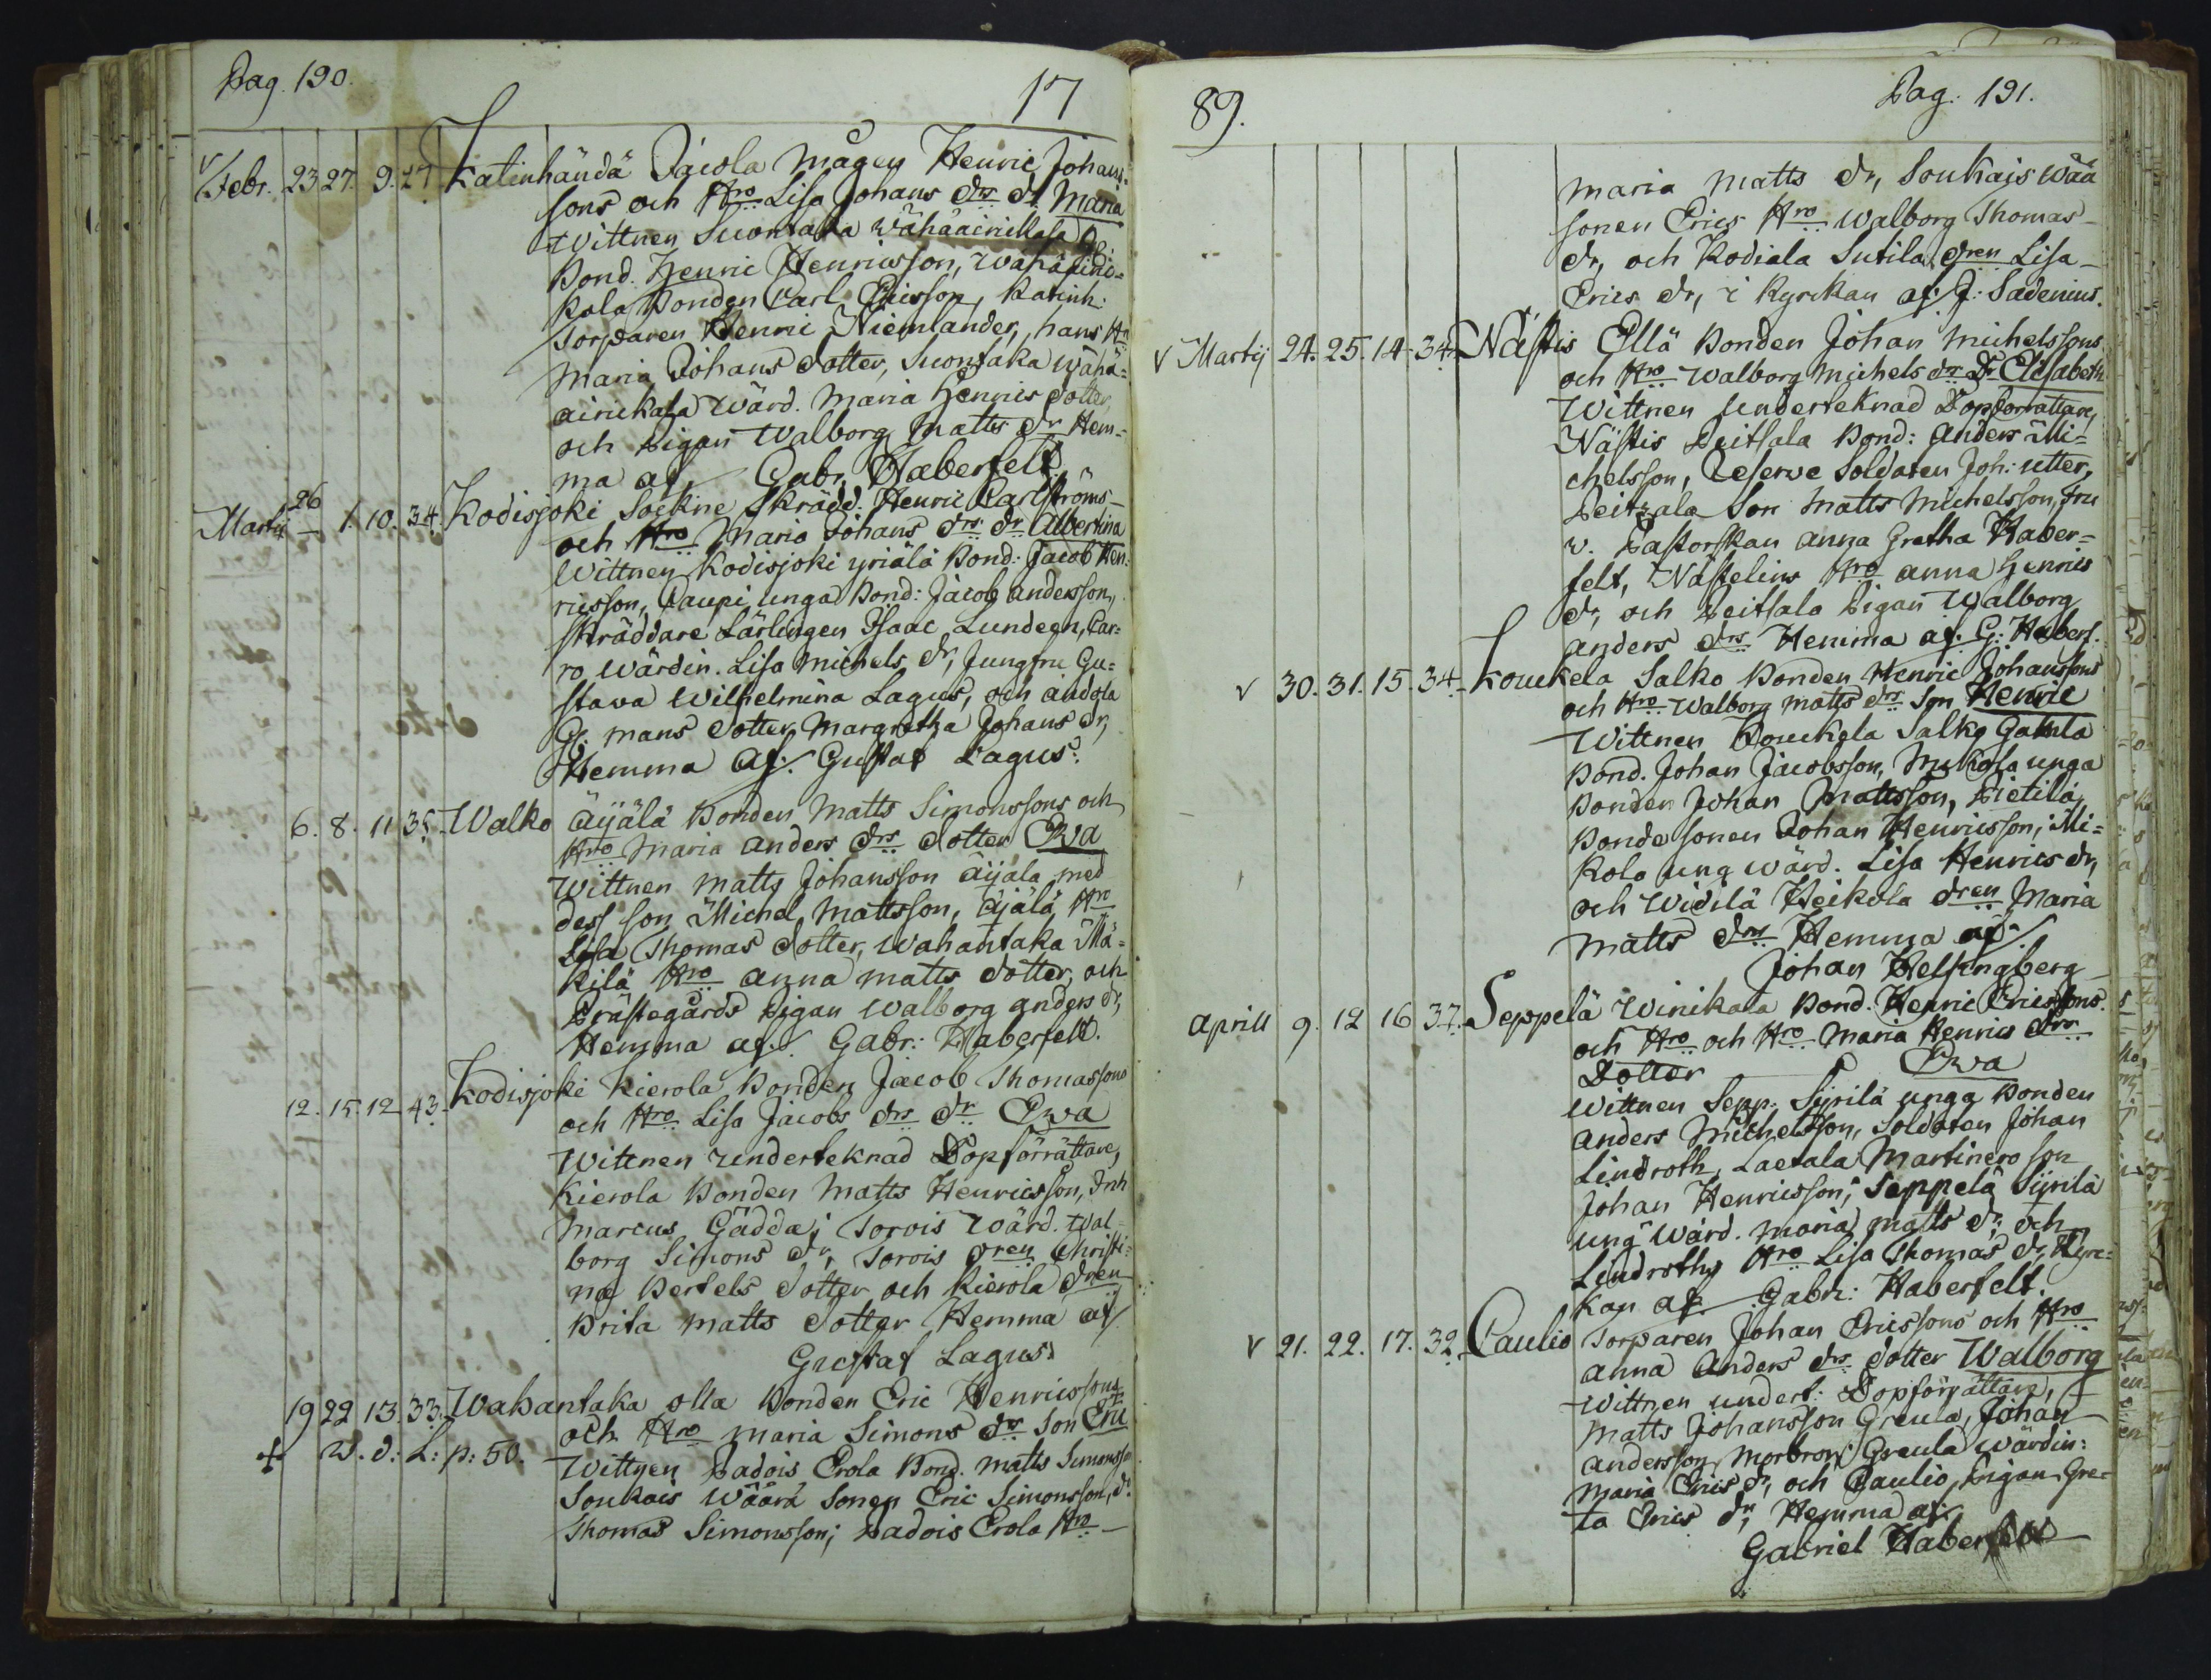 Pag. 190.
17
v Febr. 23 27. 9. 27 Katinhändä Jacola mågen Henric Johans-
sons och Hro Lisa Johans drs dr Maria
Wittnen Suontaka Wähääinikkala G.
Bond. Henric Henricsson, Wähäeini-
kala Bonden Carl Ericsson, Katinh:
Torparen Henric Niemlander, hans Hu
Maria Johans dotter, Suontaka Wähä-
ainikala Wärd. Maria Henrics dotter,
och Pigan Walborg Matts dr Hem-
ma af Gabr. Haberfelt.
Martij 26 1. 10. 34 Kodisjoki Sockne Skrädd. Henric Carlströms
och Hro Maria Johans drs dr Albertina
Wittnen Kodisjoki yriälä Bond: Jacob Hen-
ricsson, Caupi unga Bond: Jacob Andersson,
Skräddare Lärlingen Isaac Lundegn, Car-
ro Wärdin. Lisa Michels dr, Jungfru Gu-
stava Wilhelmina Lagus, och Andola
G. mans dotter Margretha Johans dr,
Hemma af: Gustaf Lagus.
6. 8. 11 35. Walko Äijälä Bonden Matts Simonssons och
Hro Maria Anders drs dotter Ewa
Wittnen Matts Johansson Äijälä med
dess son Michel Mattsson, Äjälä Hro
Lisa Thomas dotter, Wahantaka Mä-
kilä Hro Anna Matts dotter, och
Prästegårds Pigan Walborg Anders dr,
Hemma af. Gabr: Haberfelt.
12. 15. 12 43. Kodisjoki Kierola Bonden Jacob Thomassons
och Hro Lisa Jacobs drs dr Ewa
Wittnen underteknad Dopförrättare,
Kierola Bonden Matts Henricsson, Inh
Marcus Gädda; Torvois Wärd. Wal-
borg Simons dr, Torois dren Christi-
na Bertels dotter och Kierola dren
Brita Matts dotter Hemma af
Gustaf Lagus
19 22 13. 33. Wahantaka Olla Bonden Eric Henricssons
och Hro Maria Simons drs Son Eric +
+ W. d: L: p: 50. Wittnen Padois Erola Bond. Matts Simonsson
Soukais Wäärä Sonen Eric Simonsson, do
Thomas Simonsson; Padois Erola Hro
89.
Pag: 191.
Maria Matts dr, Soukais Wää
sonen Erics Hro Walborg Thomas
dr, och Kodiala Sutila dren Lisa
Erics dr, i Kyrckan af: J: Sadenius.
v Martij 24. 25. 14. 34. Nästis Ellä Bonden Johan Michelssons
och Hro Walborg Michels drs Dr Elisabeth
Wittnen Underteknad Dopförrättare,
Nästis Peitsala Bond: Anders Mi-
chelsson, Reserve Soldaten Joh: Utter,
Peitzala Son Matts Michelsson, Fru
v. Pastorskan Anna Gretha Haber-
felt, Nästelins Hro Anna Henrics
dr, och Peitsala Pigan Walborg
Anders drs Hemma af: G: Haberf.
v 30. 31. 15. 34. Kouckela Salko Bonden Henric Johanssons
och Hro Walborg Matts drs Son Henric
Wittnen Kouckela Salko Gamla
Bond. Johan Jacobsson, Mickola unga
Bonden Johan Mattsson, Pietilä
Bonde sonen Johan Henricsson; Mi-
kola ung Wärd. Lisa Henrics dr,
och Widilä Heikola dren Maria
Matts drs Hemma af
Johan Helsingberg
Aprill 9. 12 16 37. Seppelä Winikala Bond. Henric Ericssons.
och Hro och Hro Maria Henrics drs
Dotter Ewa
Wittnen Sepp: Syrilä unga Bonden
Anders Michelsson, Soldaten Johan
Lindroth, Laetala Martinero son
Johan Henricsson; Seppelä Syrilä
ung Wärd. Maria Matts dr, och
Lindroths Hro Lisa Thomas dr, Kyrc-
kan af Gabr: Haberfelt.
v 21. 22. 17. 32. Caulio Torparen Johan Ericssons och Hro
Anna Anders drs dotter Walborg
Wittnen undert: Dopförrättare,
Matts Johansson Greula, Johan
Andersson Morbron; Greula Wärdin:
Maria Erics dr, och Caulio Pigan Gre-
ta Erics dr, Hemma af
Gabriel Haberfelt